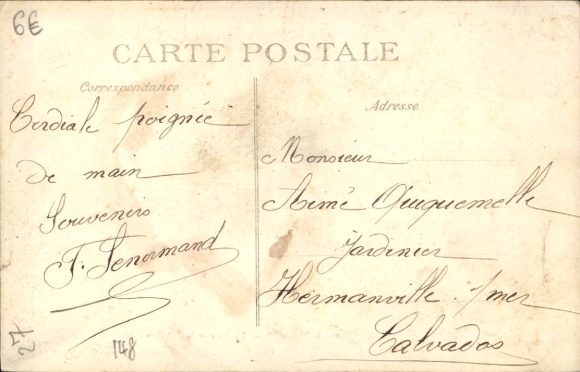 6€
CARTE POSTALE
Correspondance
Adresse
Cordiale poignée
de main
Souvenirs
F. Lenormand
Monsieur
Aimé Quiquemelle
Jardinier
Hermanville s/mer
Calvados
27
148